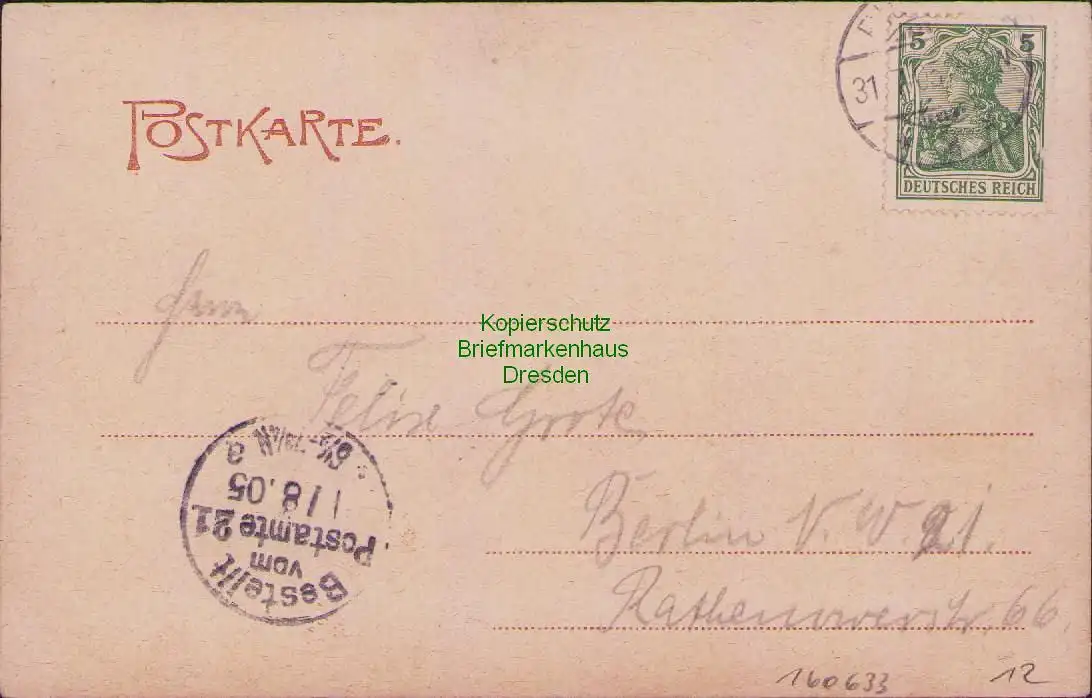 5 5
31
DEUTSCHES REICH
POSTKARTE.
Herrn
Kopierschutz
Briefmarkenhaus
Dresden
Felix Grote
Berlin N.W. 21.
Rathenowerstr. 66
Bestellt
vom
Postamte 21
1/8.05
a
160633
12